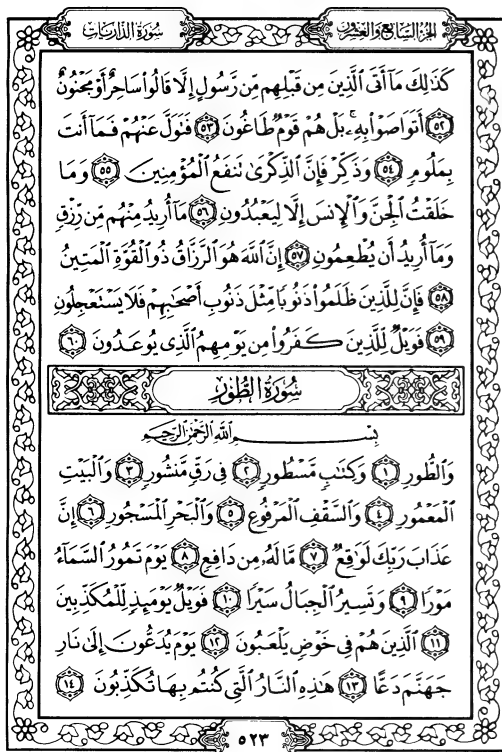 الجزء السابع والعشرون
سورة الذاريات
كَذَٰلِكَ مَا أَتَى الَّذِينَ مِن قَبْلِهِم مِّن رَّسُولٍ إِلَّا قَالُوا سَاحِرٌ أَوْ مَجْنُونٌ
٥٢ أَتَوَاصَوْا بِهِ ۚ بَلْ هُمْ قَوْمٌ طَاغُونَ ٥٣ فَتَوَلَّ عَنْهُمْ فَمَا أَنتَ
بِمَلُومٍ ٥٤ وَذَكِّرْ فَإِنَّ الذِّكْرَىٰ تَنفَعُ الْمُؤْمِنِينَ ٥٥ وَمَا
خَلَقْتُ الْجِنَّ وَالْإِنسَ إِلَّا لِيَعْبُدُونِ ٥٦ مَا أُرِيدُ مِنْهُم مِّن رِّزْقٍ
وَمَا أُرِيدُ أَن يُطْعِمُونِ ٥٧ إِنَّ اللَّهَ هُوَ الرَّزَّاقُ ذُو الْقُوَّةِ الْمَتِينُ
٥٨ فَإِنَّ لِلَّذِينَ ظَلَمُوا ذَنُوبًا مِّثْلَ ذَنُوبِ أَصْحَابِهِمْ فَلَا يَسْتَعْجِلُونِ
٥٩ فَوَيْلٌ لِّلَّذِينَ كَفَرُوا مِن يَوْمِهِمُ الَّذِي يُوعَدُونَ ٦٠
سُورَةُ الطُّورِ
بِسْمِ اللَّهِ الرَّحْمَٰنِ الرَّحِيمِ
وَالطُّورِ ١ وَكِتَابٍ مَّسْطُورٍ ٢ فِي رَقٍّ مَّنشُورٍ ٣ وَالْبَيْتِ
الْمَعْمُورِ ٤ وَالسَّقْفِ الْمَرْفُوعِ ٥ وَالْبَحْرِ الْمَسْجُورِ ٦ إِنَّ
عَذَابَ رَبِّكَ لَوَاقِعٌ ٧ مَّا لَهُ مِن دَافِعٍ ٨ يَوْمَ تَمُورُ السَّمَاءُ
مَوْرًا ٩ وَتَسِيرُ الْجِبَالُ سَيْرًا ١٠ فَوَيْلٌ يَوْمَئِذٍ لِّلْمُكَذِّبِينَ
١١ الَّذِينَ هُمْ فِي خَوْضٍ يَلْعَبُونَ ١٢ يَوْمَ يُدَعُّونَ إِلَىٰ نَارِ
جَهَنَّمَ دَعًّا ١٣ هَٰذِهِ النَّارُ الَّتِي كُنتُم بِهَا تُكَذِّبُونَ ١٤
٥٢٣